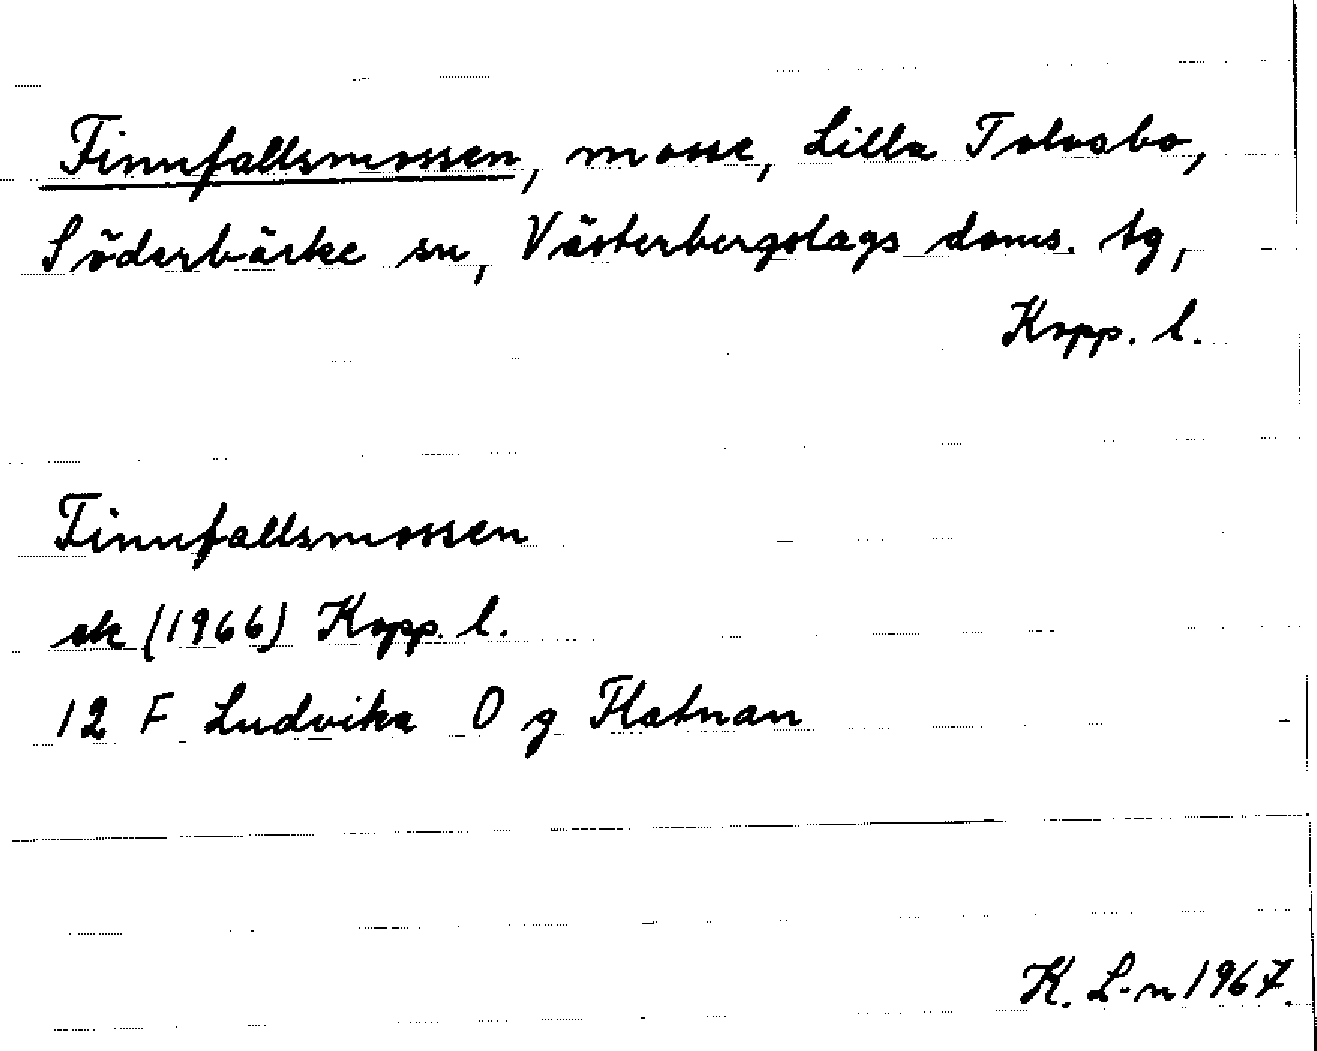 Finnfallsmossen, mosse, Lilla Tolvsbo,
Söderbärke sn, Västerbergslags doms. tg,
Kopp. l.
Finnfallsmossen
ek (1966) Kopp. l.
12 F Ludvika O g Flatnan
K. L-n 1967.